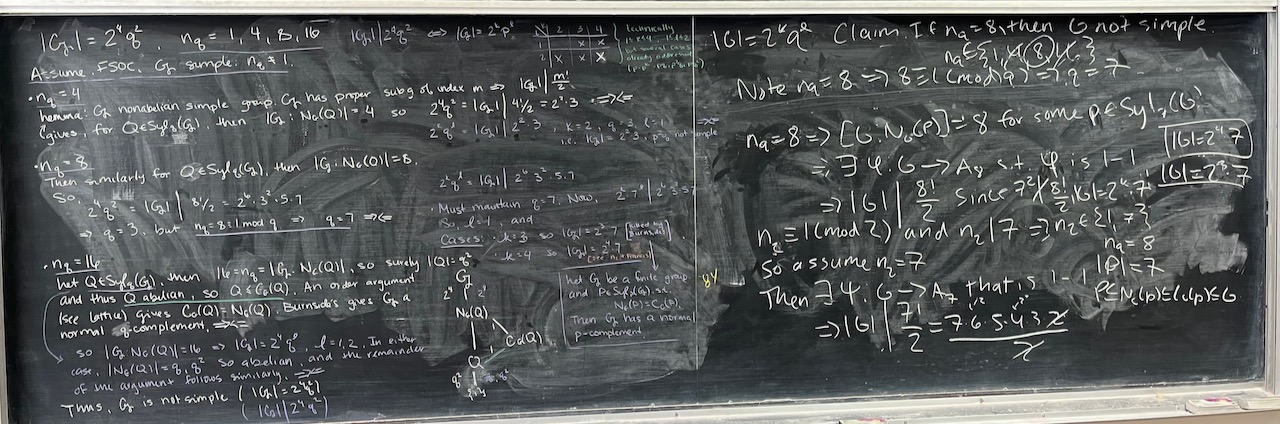 |G| = 2⁴q² , n_q = 1, 4, 8, 16
Assume, FSOC, G simple: n_q ≠ 1.
• n_q = 4
Lemma: G nonabelian simple group. G has proper subg of index m ⇒ |G| | m!/2
Gives, for Q∈Syl_q(G), then |G : N_G(Q)| = 4 so 2⁴q² = |G| | 4!/2 = 2²·3 ⇒⇐
• n_q = 8
Then similarly for Q∈Syl_q(G), then |G : N_G(Q)| = 8.
So, 2⁴q² = |G| | 8!/2 = 2⁶·3²·5·7
⇒ q = 3, but n_q = 8 ≡ 1 mod q ⇒ q = 7 ⇒⇐
• n_q = 16
Let Q∈Syl_q(G), then 16 = n_q = |G : N_G(Q)|, so surely |Q| = q²
and thus Q abelian, so Q ≤ C_G(Q). An order argument
(see lattice) gives C_G(Q) = N_G(Q). Burnside's gives G a
normal q-complement, ⇒⇐
so |G : N_G(Q)| = 16 ⇒ |G| = 2⁴q^l, l = 1, 2. In either
case, |N_G(Q)| = q, q² so abelian and the remainder
of the argument follows similarly. ⇒⇐
Thus, G is not simple (|G| = 2⁴q²)
(|G| | 2⁴q²)
|G| | 2⁴q² ⇔ |G| = 2^k q^l
2 3 4
1 x x
2 x x x
technically
already addressed
2^k q^l = |G| | 2²·3, k = 2, q = 3, l = 1
i.e. |G| = 2²·3, p²q not simple ⇒⇐
2^k q^l = |G| | 2⁶·3²·5·7
• Must maintain q = 7. Now,
So, l = 1, and
Cases: • k = 3 so |G| = 2³·7 [killed by Burnside]
• k = 4 so |G| = 2⁴·7
Let G be a finite group
and P∈Syl_p(G) s.t.
N_G(P) = C_G(P).
Then G has a normal
p-complement.
G
2⁴
N_G(Q)
C_G(Q)
Q
q²
|G| = 2⁴q². Claim: If n_q = 8, then G not simple.
n_q ∈ {1, 4, (8), 16}
Note n_q = 8 ⇒ 8 ≡ 1 (mod q) ⇒ q = 7
n_q = 8 ⇒ [G : N_G(P)] = 8 for some P∈Syl_7(G)
⇒ ∃ φ: G → A_8 s.t. φ is 1-1
|G| = 2⁴·7
|G| = 2³·7
⇒ |G| | 8!/2 since 7² ∤ 8!/2, |G| = 2^k·7
n_2 ≡ 1 (mod 2) and n_2 | 7 ⇒ n_2 ∈ {1, 7}
So assume n_2 = 7
n_q = 8
|P| = 7
P ≤ N_G(P) ≤ C_G(P) ≤ G
Then ∃ φ: G → A_7 that is 1-1
⇒ |G| | 7!/2 = 7·6·5·4·3·2/2